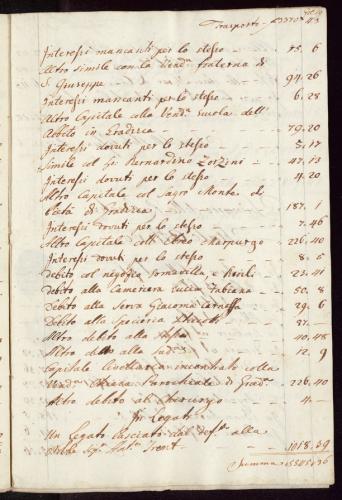 Trasporto
Interessi mancanti per lo stesso - - 75. 6
Altro simile con la Vend.ª fraterna di
S. Giuseppe - - 94. 26
Interessi mancanti per lo stesso - 6. 28
Altro Capitale alla Vend.ª scuola dell'
in Gradisca - - 79. 20
Interessi dovuti per lo stesso - - 5. 17
Simile al Sr. Bernardino Zorzini - - 47. 13
Interessi dovuti per lo stesso - - 4. 20
Altro Capitale al Sagro Monte di
Pietà di Gradisca - - 187. 1
Interessi dovuti per lo stesso - - 7. 46
Altro Capitale coll' Ebreo Marpurgo - 226. 40
Interessi dovuti per lo stesso - - 8. 5
Debito col negozio e - 23. 41
Debito alla Cameriera Lucia - 50. 8
Debito alla Serva Giacoma - 29. 6
Debito alla Speciaria - 37. -
Altro debito alla - - 40. 48
Altro debito alla sud.ª - - 12. 9
Capitale incontrato colla
Vend.ª Chiesa Parochiale di Grad.ª - 226. 40
Altro debito al Chirurgo - - 4. -
In Legati
Un Legato lasciato dal def.º alla
- - 1018. 39
Summa